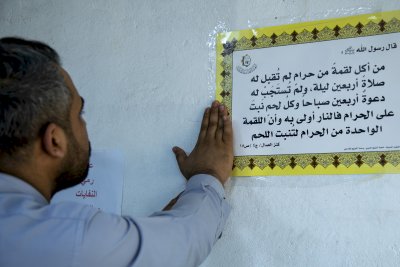 قال رسول الله ﷺ
من أكل لقمةً من حرام لم تُقبل له
صلاةُ أربعين ليلة، ولم تستجب له
دعوةُ أربعين صباحاً وكل لحم نبتَ
على الحرام فالنار أولى به وأن اللقمة
الواحدة من الحرام لتنبت اللحم
كنز العمال
رمي
النفايات